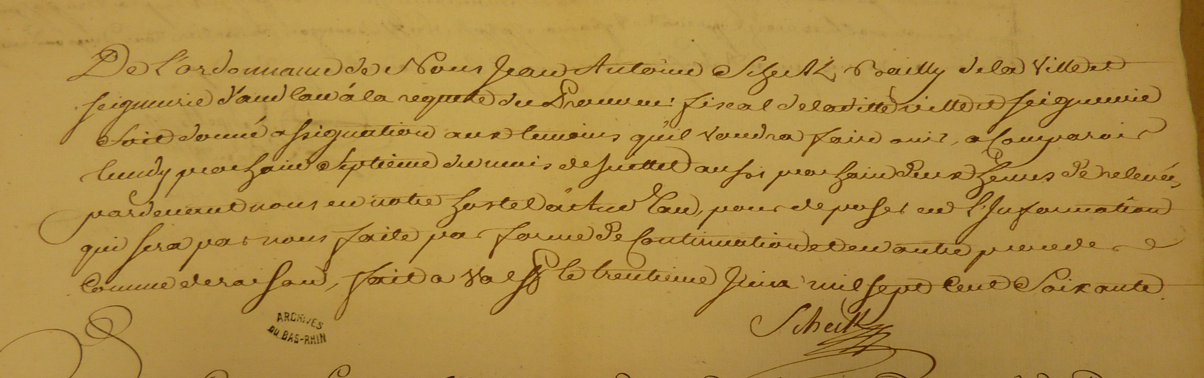 De L'ordonnance de Nous Jean Antoine Scheck Bailly de la Ville et
seigneurie d'andlau à la requete du Procureur fiscal de la ditte ville et seigneurie
soit donné assignation aux temoins qu'il voudra faire ouir, a Comparoir
lundy prochain septième du mois de Juillet aussi prochain deux heures de relevée,
pardevant nous en notre hostel à Andlau, pour deposer en L'Information
qui sera par nous faite par forme de Continuation et en outre proceder
Comme de raison, fait a Valff le trentieme Juin mil sept Cent Soixante.
ARCHIVES
DU BAS-RHIN